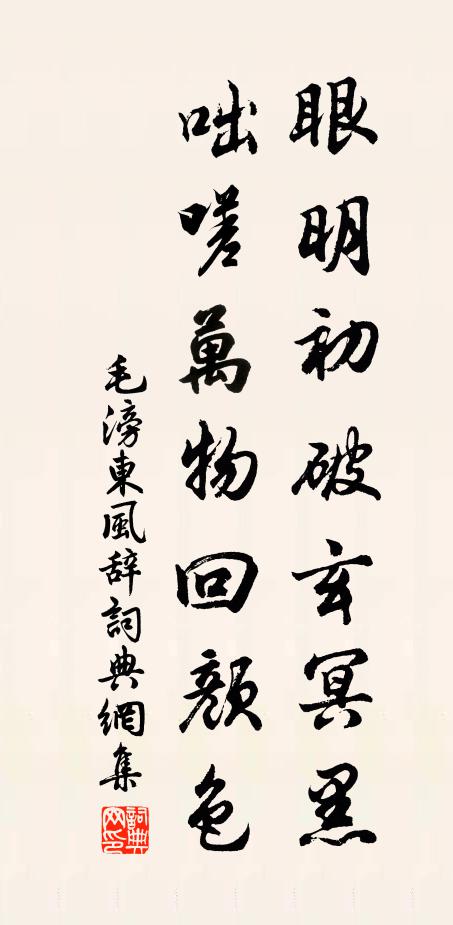 眼明初破玄冥黑
咄嗟萬物回顏色
毛滂東風辞詞典網集
詞典网印